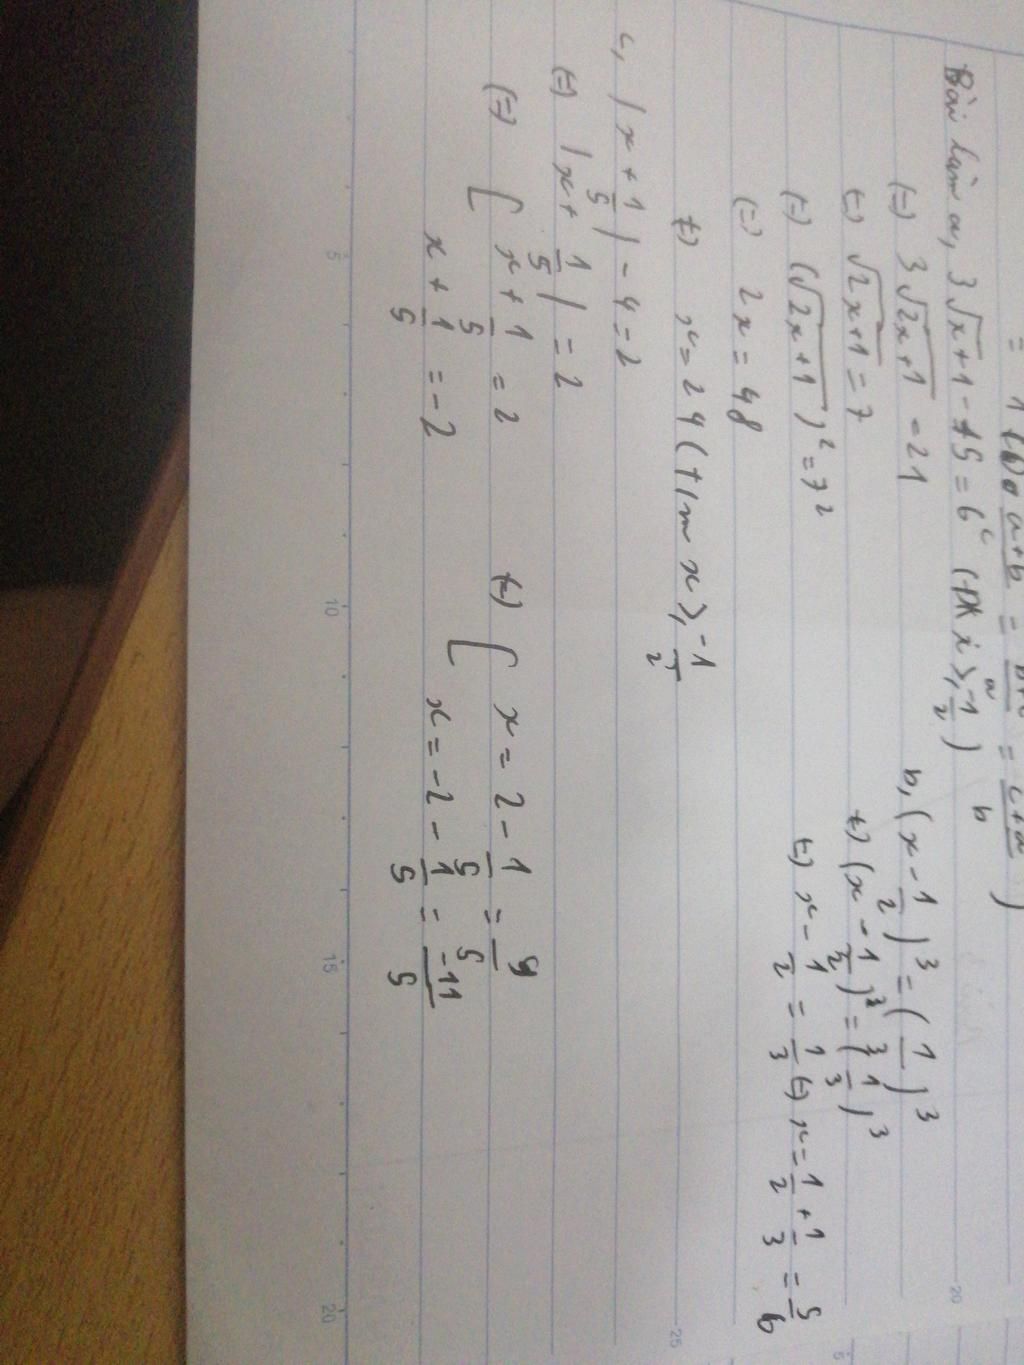 = 1
a+b = b+c = c+a )
b
Bài làm a, 3√x+1 - 15 = 6 (ĐK x ⩾ -1/2)
(=) 3√2x+1 = 21
(=) √2x+1 = 7
(=) (√2x+1)² = 7²
(=) 2x = 48
(=) x = 24 (t/m x ⩾ -1/2)
b, (x - 1/2)³ = (1/3)³
(=) (x - 1/2)³ = (1/3)³
(=) x - 1/2 = 1/3 (=) x = 1/2 + 1/3 = 5/6
c, |x + 1/5| - 4 = 2
(=) |x + 1/5| = 2
(=) [ x + 1/5 = 2
x + 1/5 = -2
(=) [ x = 2 - 1/5 = 9/5
x = -2 - 1/5 = -11/5
5
10
15
20
20
25
5